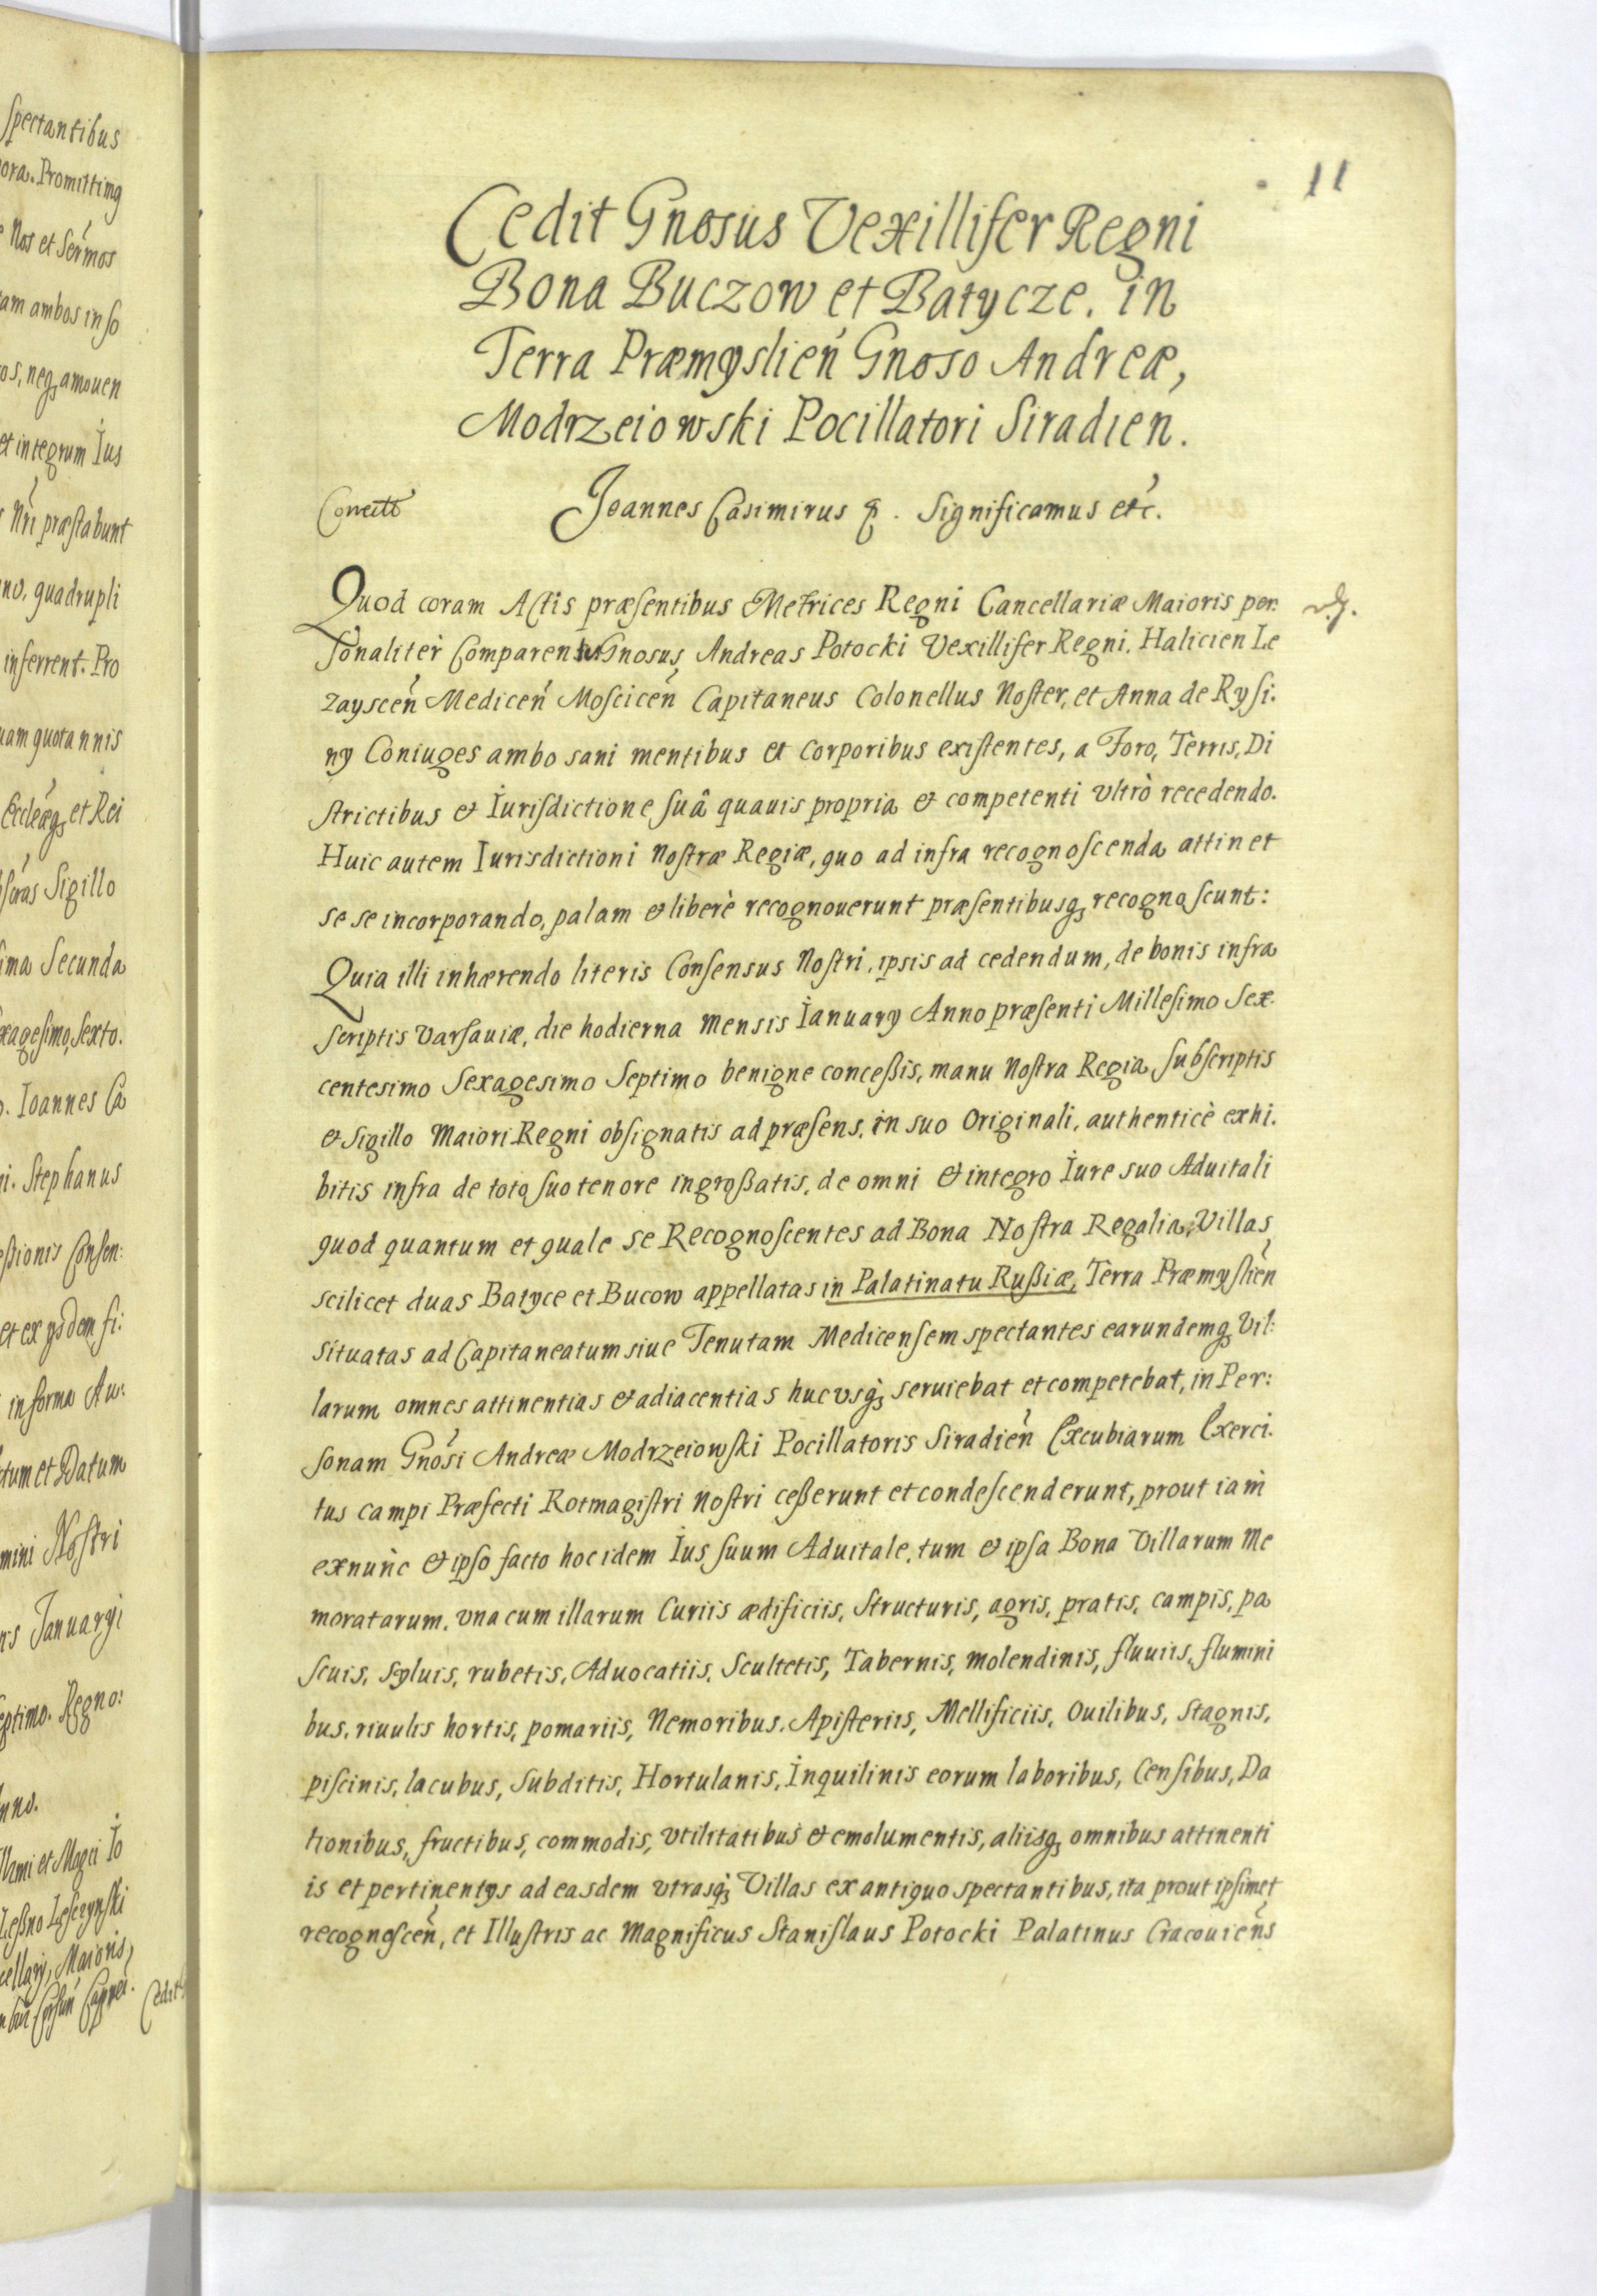 spectantibus
ora. Promitting
Nos et Sermos
tam ambos in so
os, neq amouen
et integrum Ius
Nri præstabunt
no, quadrupli
inferrent. Pro
uam quotannis
Eccleæq et Rei
Sigillo
ima Secunda
xagesimo, sexto.
Ioannes Ca
i. Stephanus
essionis Consen:
et ex ysdem si:
in forma Au:
tum et Datum
mini Nostri
is Januaryi
eptimo. Regno:
nno.
et Magci Io
Leßno Lesczynski
cellary, Maioris,
Cedit
11
Cedit Gnosus Vexillifer Regni
Bona Buczow et Batycze. in
Terra Præmyslień Gnoso Andreæ,
Modrzeiowski Pocillatori Siradien.
Joannes Casimirus . Significamus etc.
Quod coram Actis præsentibus Metrices Regni Cancellariæ Maioris per.
sonaliter Comparen Gnosus Andreas Potocki Vexillifer Regni. Halicien Le
zaysceń Mediceń Mosciceń Capitaneus Colonellus Noster, et Anna de Rysi.
ny Coniuges ambo sani mentibus et corporibus existentes, a Foro, Terris, Di
strictibus & Iurisdictione suâ quauis propria & competenti vltrò recedendo.
Huic autem Iurisdictioni Nostræ Regiæ, quo ad infra recognoscenda attinet
se se incorporando, palam & liberè recognouerunt præsentibusq recognoscunt:
Quia illi inhærendo literis Consensus Nostri, ipsis ad cedendum, de bonis infra
scriptis Varsauiæ, die hodierna Mensis Ianuary Anno præsenti Millesimo Sex.
centesimo Sexagesimo Septimo benigne conceßis, manu Nostra Regia subscriptis
& Sigillo Maiori Regni obsignatis ad præsens, in suo Originali, authenticè exhi.
bitis infra de toto suo tenore ingroßatis, de omni & integro Iure suo Aduitali
quod quantum et quale se Recognoscentes ad Bona Nostra Regalia, Villas
scilicet duas Batyce et Bucow appellatas in Palatinatu Rußiæ, Terra Præmyslień
situatas ad Capitaneatum siue Tenutam Medicensem spectantes earundemq Vil:
larum omnes attinentias & adiacentias hucvsq seruiebat et competebat, in Per:
sonam Gnosi Andreæ Modrzeiowski Pocillatoris Siradień Excubiarum Exerci.
tus campi Præfecti Rotmagistri Nostri ceßerunt et condescenderunt, prout iam
exnunc & ipso facto hoc idem Ius suum Aduitale, tum & ipsa Bona Villarum Me
moratarum, vna cum illarum Curiis ædificiis, structuris, agris, pratis, campis, pa
scuis, syluis, rubetis, Aduocatiis, Scultetis, Tabernis, molendinis, fluuiis, flumini
bus, riuulis hortis, pomariis, Nemoribus, Apisteriis, Mellificiis, Ouilibus, stagnis,
piscinis, lacubus, subditis, Hortulanis, Inquilinis eorum laboribus, Censibus, Da
tionibus, fructibus, commodis, vtilitatibus & emolumentis, aliisq omnibus attinenti
is et pertinentys ad easdem vtrasq Villas ex antiquo spectantibus, ita prout ipsimet
recognosceń, et Illustris ac Magnificus Stanislaus Potocki Palatinus Cracouieńs